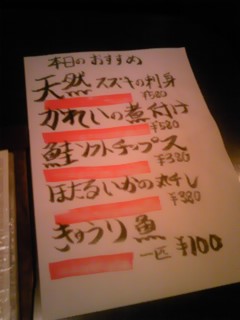 本日のおすすめ
天然スズキの刺身
¥580
かれいの煮付け
¥580
鮭ソフトチップス
¥380
ほたるいかの丸干し
¥380
きゅうり魚
一匹 ¥100